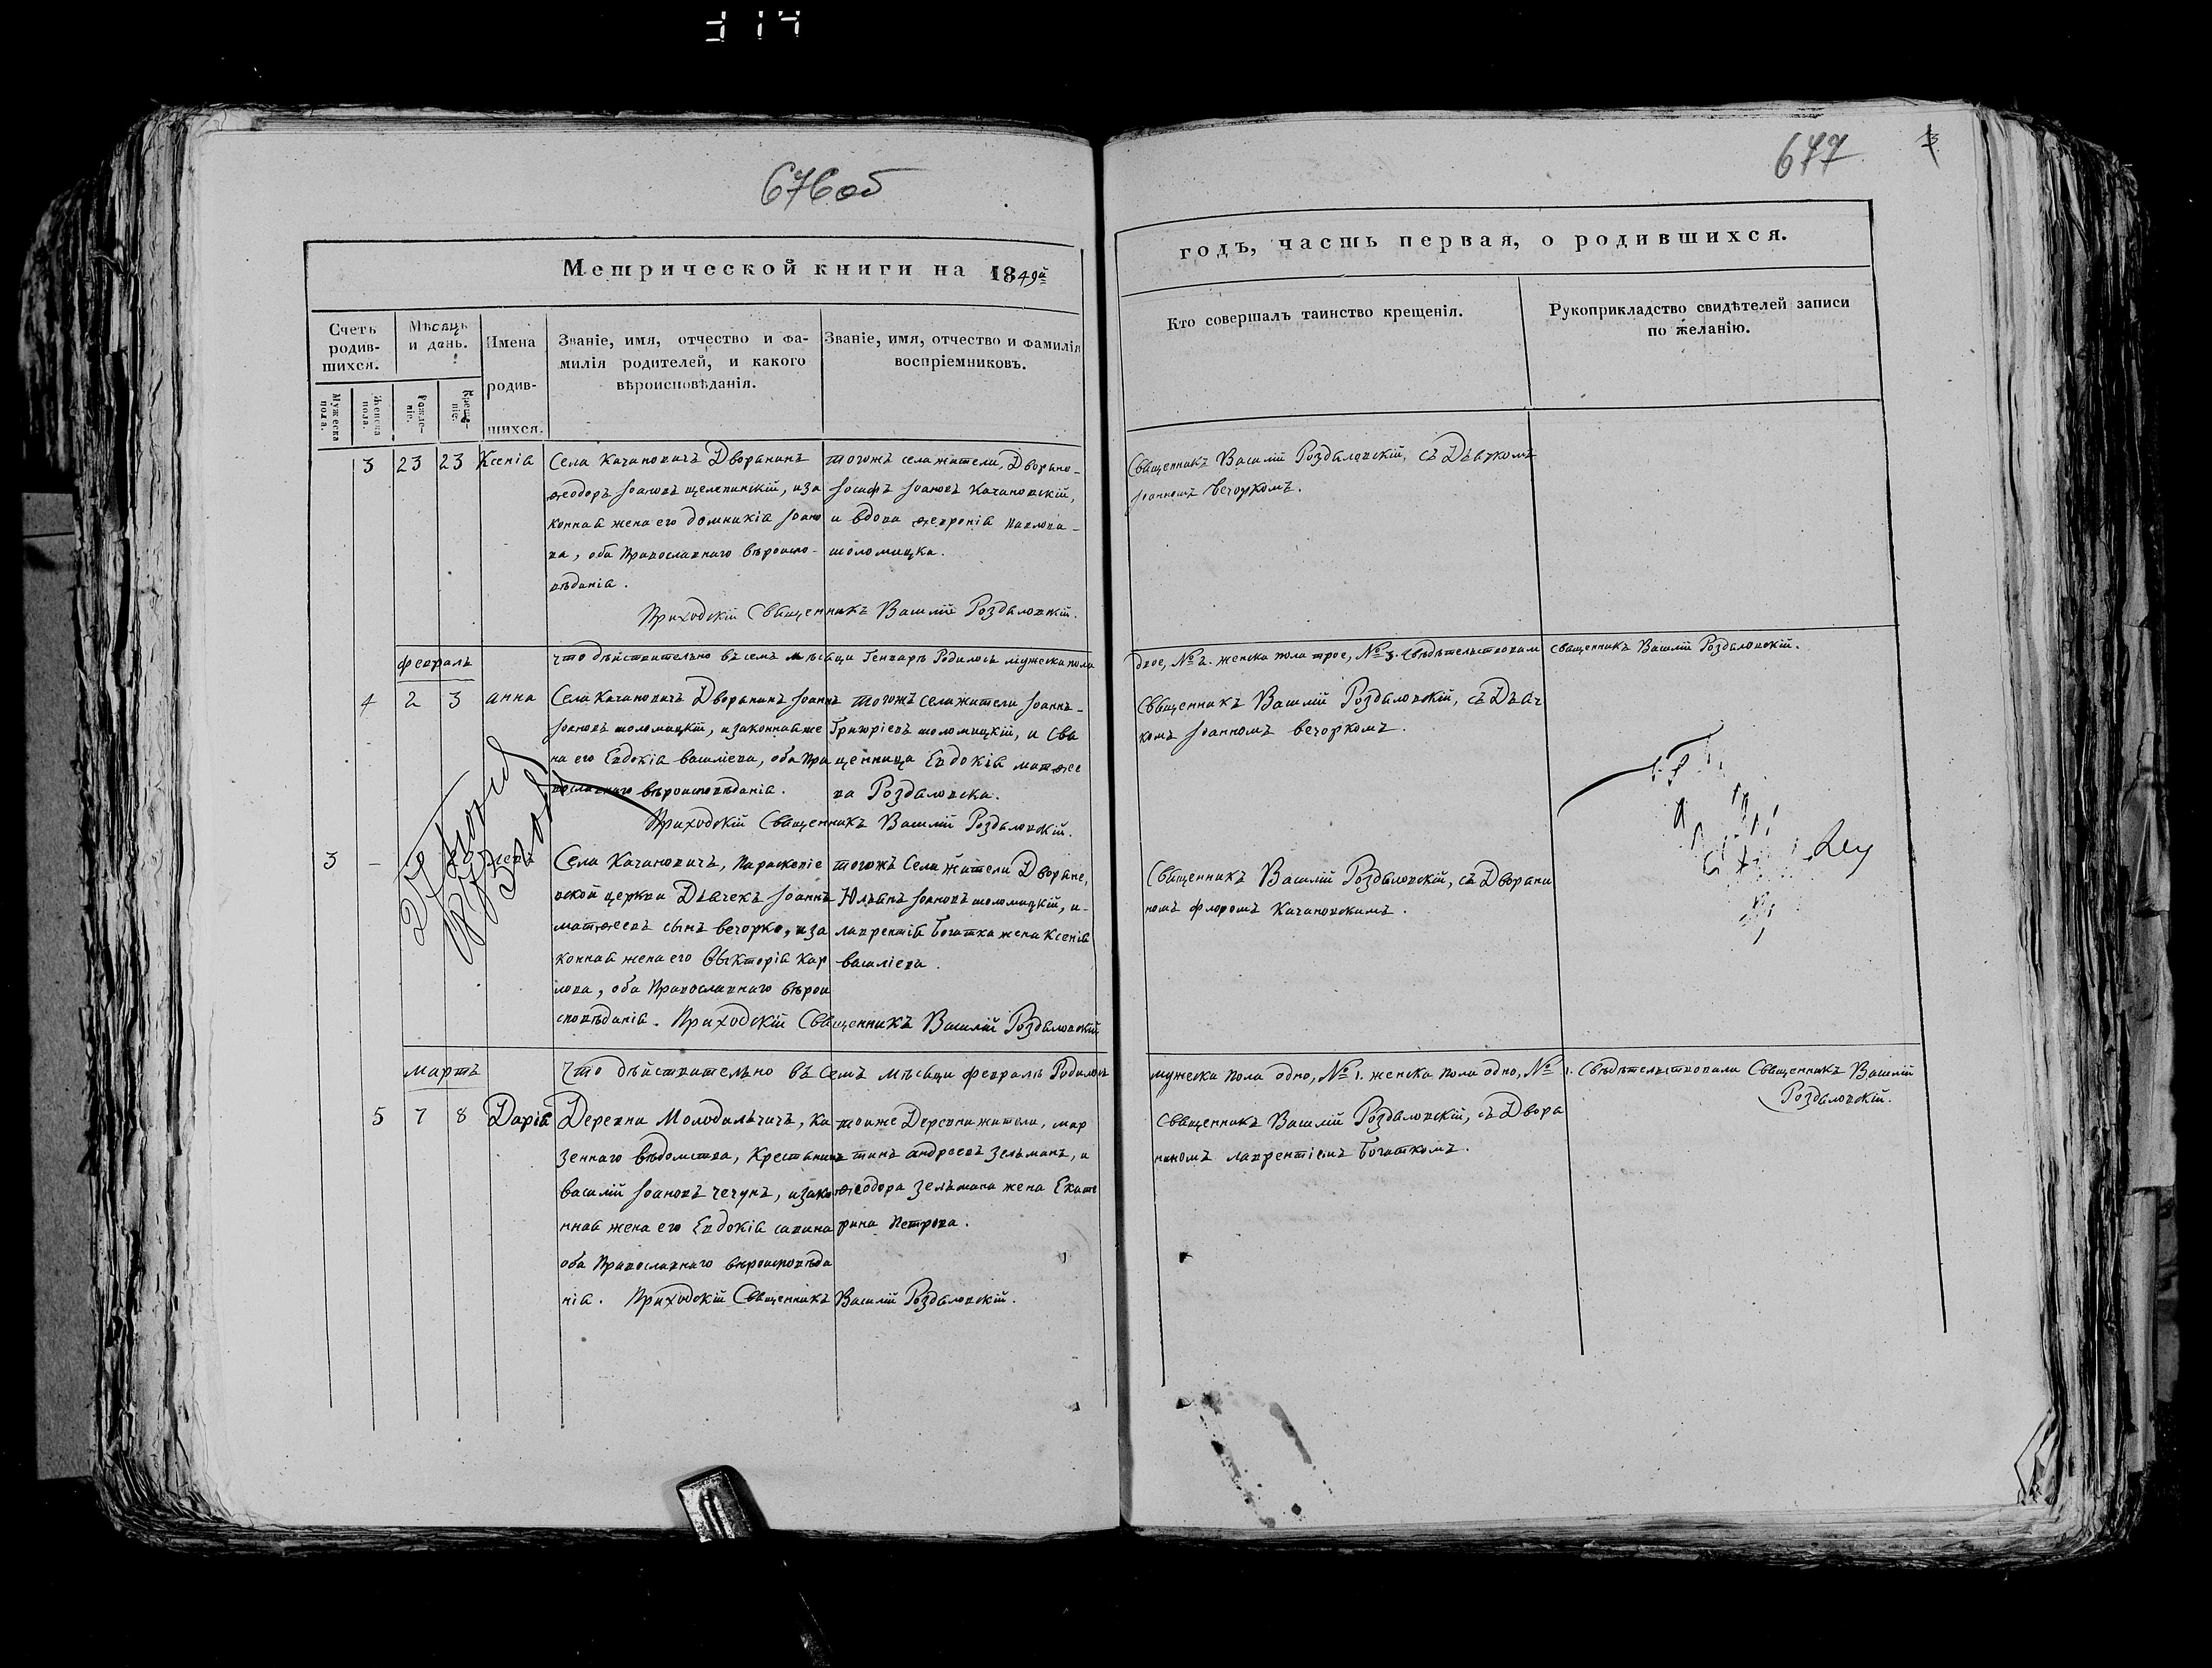 314
676 об
677
Метрической книги на 1849й
годъ, часть первая, о родившихся.
Счетъ родив-шихся.
Мужеска пола.
Женска пола.
Мѣсяцъ и день.
Рожде-нiе.
Креще-нiе.
Имена родив-шихся.
Званіе, имя, отчество и фа-
милія родителей, и какого
вѣроисповѣданія.
Званіе, имя, отчество и фамилія
воспріемниковъ.
Кто совершалъ таинство крещенія.
Рукоприкладство свидѣтелей записи
по желанію.
3 23 23 Ксенія
Села Качановичъ Дворянинъ
Ѳеодоръ Іоановъ щелепинскій, иза
конная жена его домникія Іоано
ва, оба Православнаго вѣроиспо-
вѣданія.
тогожъ села жители, Дворяне-
Іосифъ Іоановъ Качановскій,
и вдова Ѳевронія Павлова-
шоломицка.
Приходскій Священникъ Василій Роздяловскій.
Священникъ Василій Роздяловскій, съ Дьячкомъ
Іоанномъ Вечоркомъ.
февраль
что дѣйствительно въ семъ мѣсяци Генваръ Родилось мужеска пола
двое, № 2. женска пола трое, № 3. свѣдѣтельствовали священникъ Василій Роздяловскій.
4 2 3 анна
Села Качановичъ Дворянинъ Іоаннъ
Іоановъ шоломицкій, изаконная же
на его Евдокія василіева, оба Пра
вославнаго вѣроисповѣданія.
тогожъ Села жители Іоаннъ-
Григоріевъ шоломицкій, и Свя
щенница Евдокія матѳее
ва Роздяловска.
Приходскій Священникъ Василій Роздяловскій.
Священникъ Василій Роздяловскій, съ Дьяч
комъ Іоанномъ вечоркомъ.
3 -
Села Качановичъ, Параскевіе
вской церкви Дьячекъ Іоаннъ
матѳеевъ сынъ вечорко, иза
конная жена его Выкторія Кар
лова, оба Православнаго вѣрои
сповѣданія.
тогожъ Села жители Дворяне,
Юльянъ Іоановъ шоломицкій, и-
лаврентія Богатка жена Ксенія
василіева.
Приходскій Священникъ Василій Роздяловскій
Священникъ Василій Роздяловскій, съ Дворяни
номъ флоромъ Качановскимъ.
мартъ
Что дѣйствительно въ семъ мѣсяци февралѣ Родилось
мужеска пола одно, № 1. женска пола одно, № 1. Свѣдѣтельствовали Священникъ Василій
Роздяловскій.
5 7 8 Дарія
Деревни Молодильчичъ, Ка
зеннаго вѣдомства, Крестянинъ
василій Іоановъ чечунъ, изако
нная жена его Евдокія савина
оба Православнаго вѣроисповѣда
нія.
тоиже Деревни жители, мар
тинъ андреевъ зельманъ, и
Ѳеодора зельмана жена Екате
рина Петрова.
Приходскій Священникъ Василій Роздяловскій.
Священникъ Василій Роздяловскій, съ Дворя
ниномъ лаврентіемъ Богаткомъ.